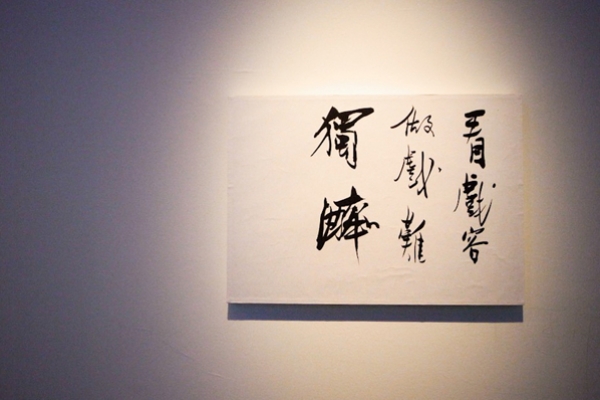 看戲容
做戲難
獨醉